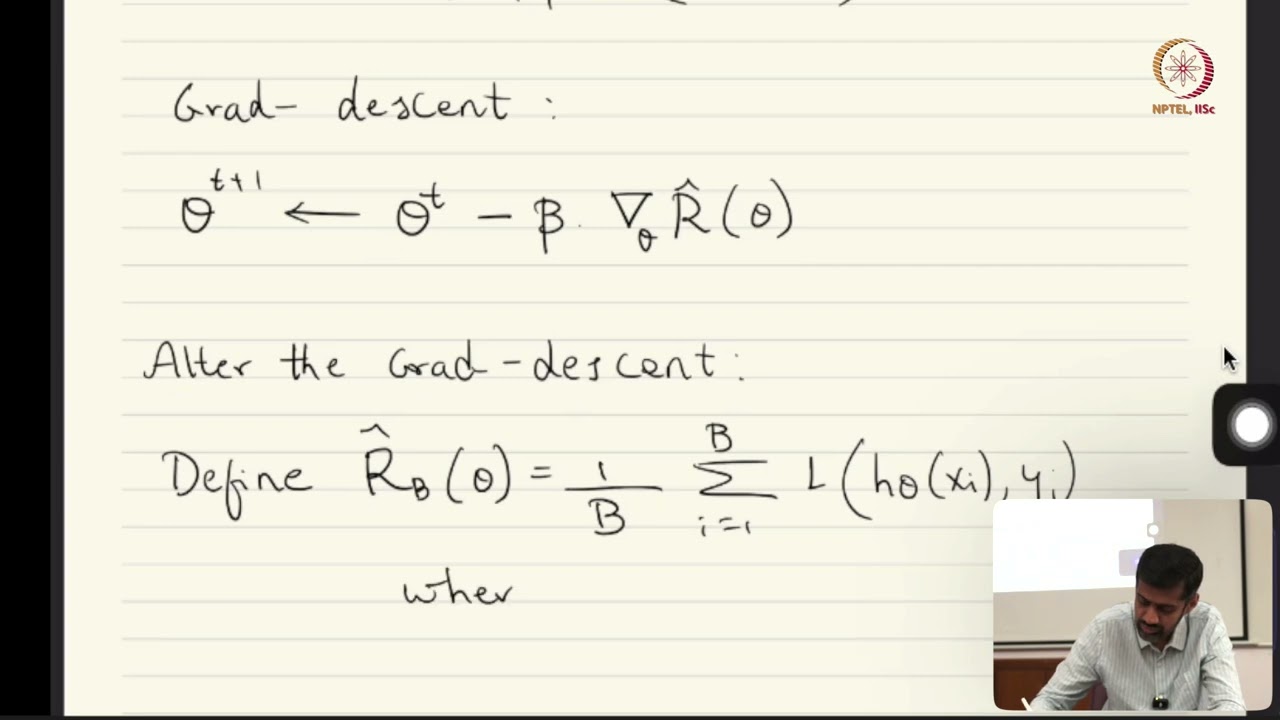 NPTEL, IISc
Grad- descent :
θ^{t+1} ← θ^t - β. ∇_θ R̂(θ)
Alter the Grad-descent :
Define R̂_B(θ) = 1/B Σ_{i=1}^{B} L(hθ(xi), yi)
wher